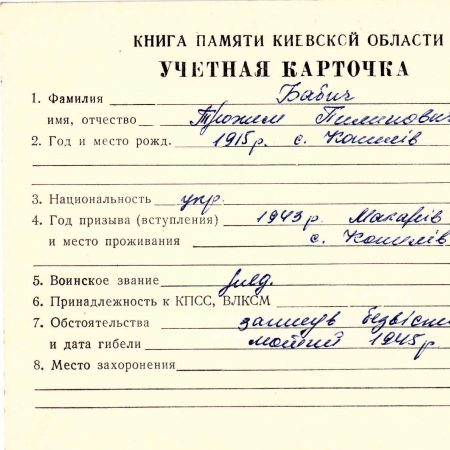 КНИГА ПАМЯТИ КИЕВСКОЙ ОБЛАСТИ
УЧЕТНАЯ КАРТОЧКА
1. Фамилия Бабич
имя, отчество Трохим Пилипович
2. Год и место рожд. 1915 р. с. Копилів
3. Национальность укр.
4. Год призыва (вступления) 1943 р. Макарів
и место проживания с. Копилів
5. Воинское звание
6. Принадлежность к КПСС, ВЛКСМ
7. Обстоятельства
и дата гибели 1945 р.
8. Место захоронения